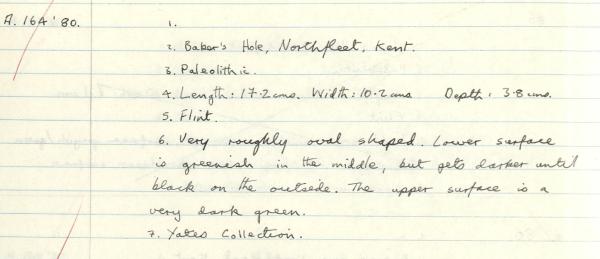 A. 164 '80.
1.
2. Baker's Hole, Northfleet, Kent.
3. Paleolithic.
4. Length: 17.2cms. Width: 10.2cms Depth: 3.8cms.
5. Flint.
6. Very roughly oval shaped. Lower surface
is greenish in the middle, but gets darker until
black on the outside. The upper surface is a
very dark green.
7. Yates Collection.